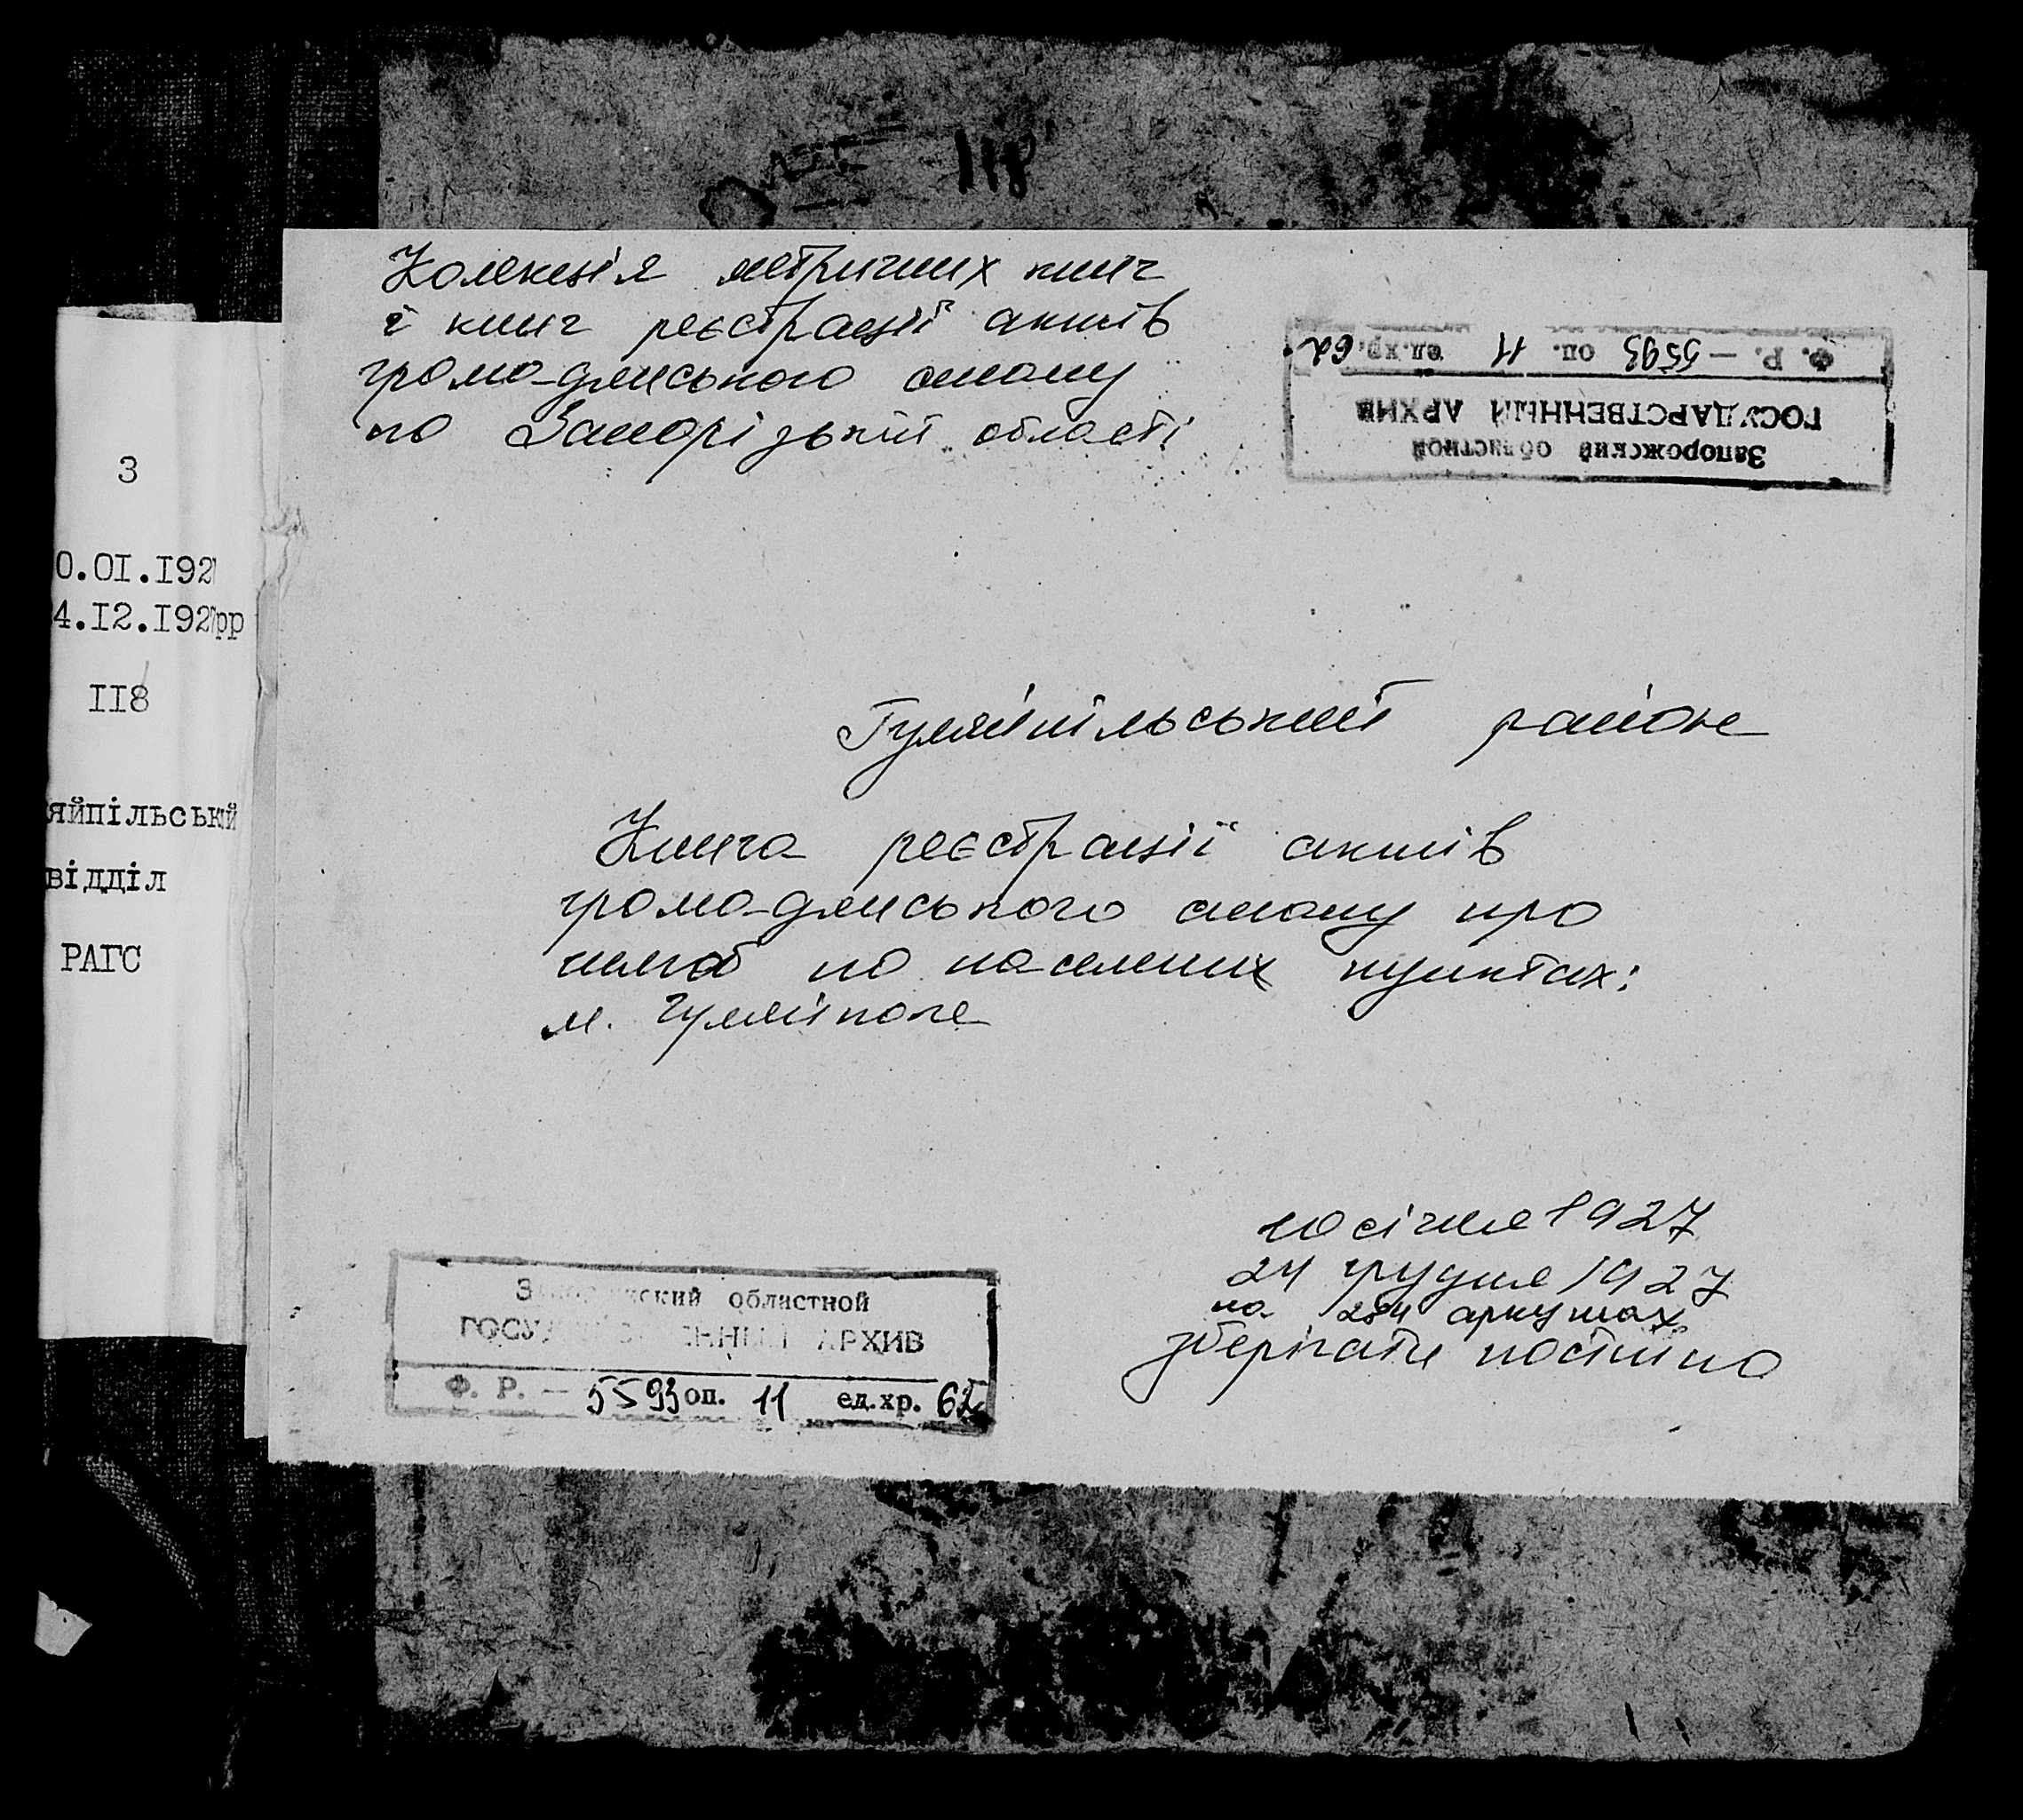 118
Колекція метричних книг
і книг реєстрації актів
громадянського стану
по Запорізькій області
Запорожский областной
ГОСУДАРСТВЕННЫЙ АРХИВ
Ф. Р. — 5593 оп. 11 ед.хр. 62
3
0.01.1927
4.12.1927рр
118
яйпільський
відділ
РАГС
Гуляйпільський район
Книга реєстрації актів
громадянського стану про
шлюб по населених пунктах:
м. Гуляйполе
10 січня 1927
24 грудня 1927
на 284 аркушах
зберігати постійно
Запорожский областной
ГОСУДАРСТВЕННЫЙ АРХИВ
Ф. Р. — 5593 оп. 11 ед.хр. 62